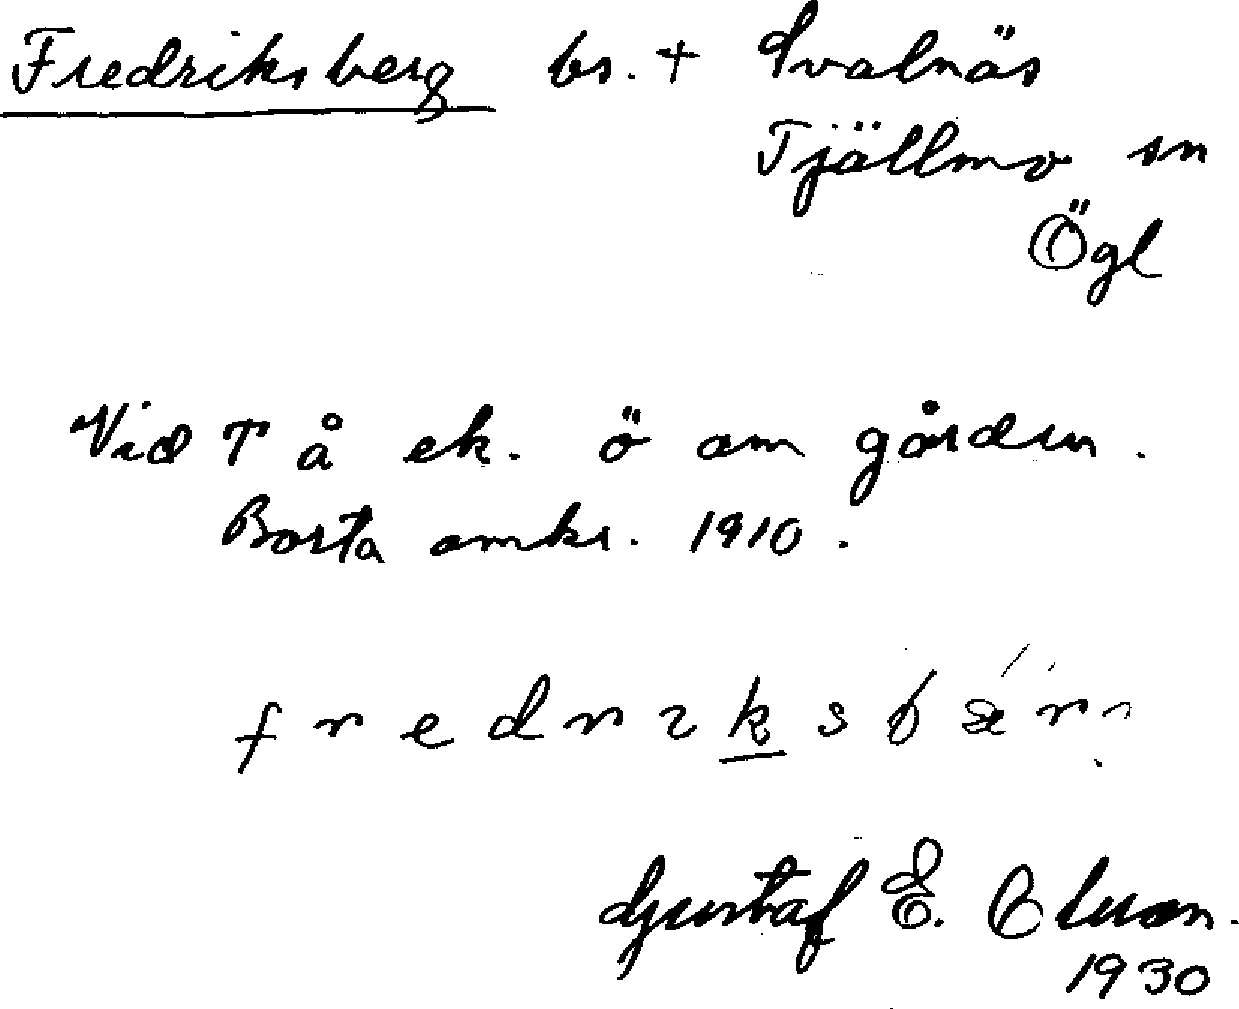 Fredriksberg bs. + Svalnäs
Tjällmo sn
Ögl
Vid T å ek. ö om gården.
Borta omkr. 1910.
Gustaf E.
1930